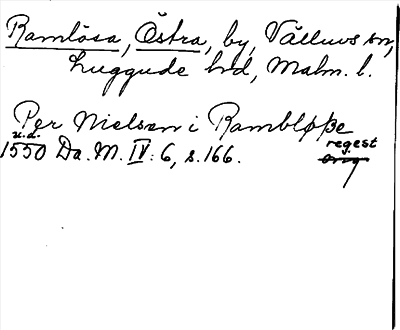 Ramlösa, Östra, by, Välluvs sn,
Luggude hrd, Malm. l.
Per Nielsen i Rambløsse
u.d. regest
1550 Da. M. IV: 6, s. 166. orig